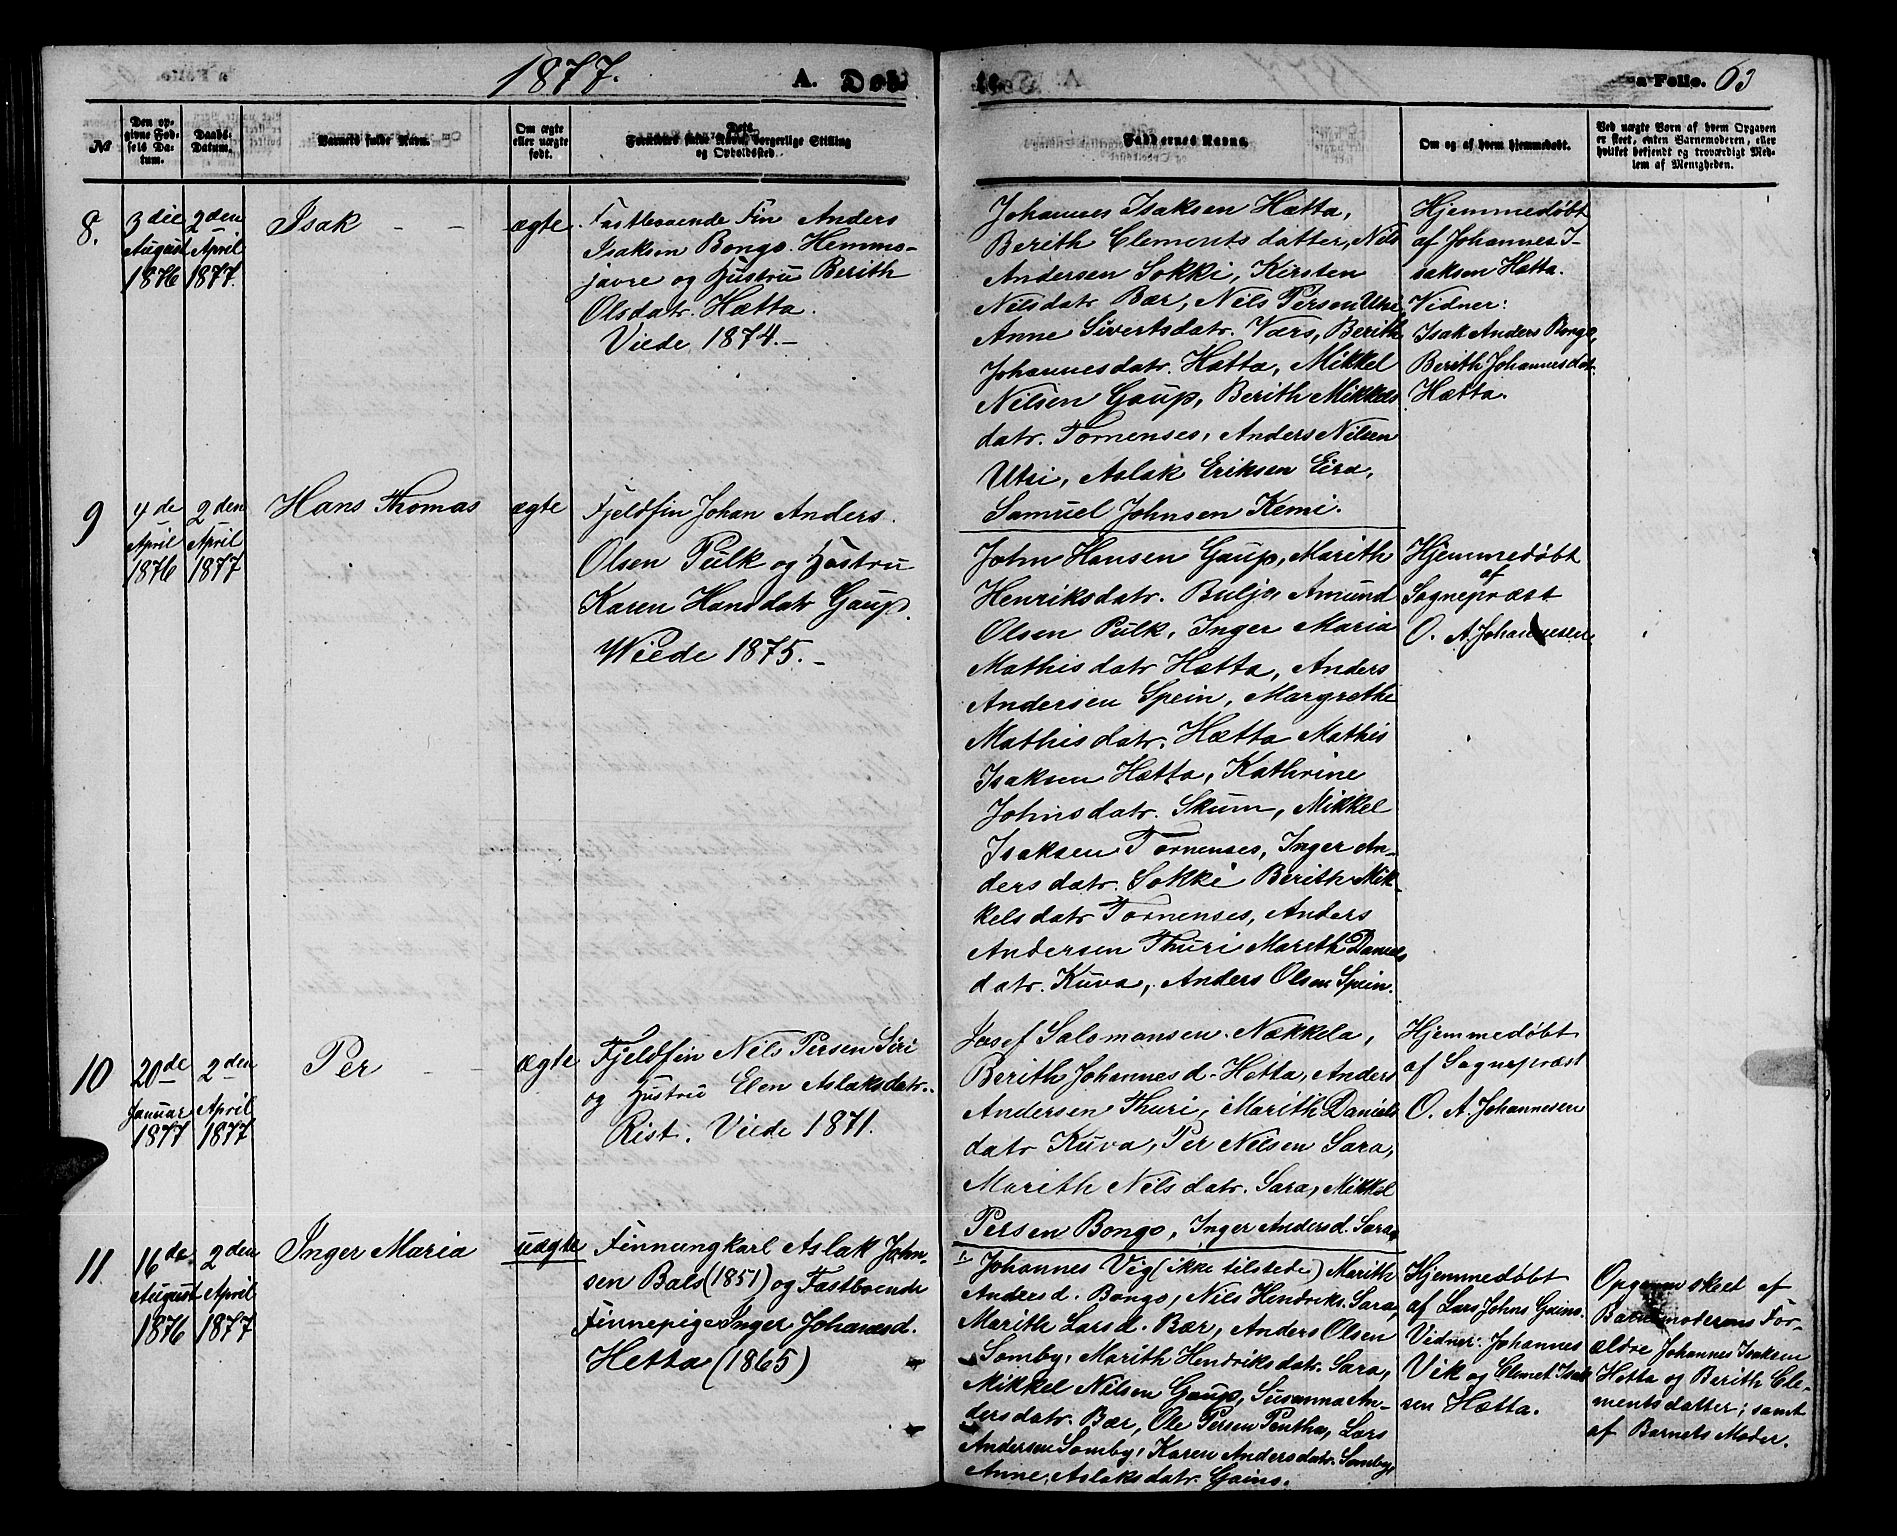 1877. A. Døb-
te. a Folio. 63
No
Den op-
givne Fød-
sels Da-
tum.
Daabs-
Datum.
Barnets fulde Navn.
Om ægte
eller uægte
født.
Forældres fulde Navn, borgerlige Stilling
og Opholdssted.
Faddernes Navne.
Om og af hvem hjemmedøbt.
Ved uægte Børn af hvem Opgaven
er skeet, enten Barnemoderen, eller
hvilket bekjendt og troværdigt Med-
lem af Menigheden.
8.
3die
August
1876
2den
April
1877.
Isak - -
ægte
Fastboende Fin Anders
Isaksen Bongo. Hemmo-
javre og Hustru Berith
Olsdatr. Hætta.
Viede 1874.-
Johannes Isaksen Hætta,
Berith Clements datter, Nils
Andersen Sokki, Kirsten
Nilsdatr. Bær, Nils Persen Utsi,
Anne Sivertsdatr. Vars, Berith
Johannesdatr. Hætta, Mikkel
Nilsen Gaup, Berith Mikkels
datr. Tornenses, Anders Nilsen
Utsi, Aslak Eriksen Eira,
Samuel Johnsen Kemi.
Hjemmedøbt
af Johannes I-
saksen Hætta.
Vidner:
Isak Anders Bongo,
Berith Johannesdat.
Hætta.
9
4de
April
1876
2den
April
1877
Hans Thomas
ægte
Fjeldfin Johan Anders.
Olsen Pulk og Hustru
Karen Hansdatr Gaup.
Wiede 1875.-
John Hansen Gaup, Marith
Henriksdatr. Buljo, Amund
Olsen Pulk, Inger Maria
Mathisdatr Hætta, Anders
Andersen Spein, Margrethe
Mathisdatr. Hætta Mathis
Isaksen Hætta, Kathrine
Johnsdatr. Skum, Mikkel
Isaksen Tornenses, Inger An-
dersdatr. Sokki Berith Mik-
kelsdatr Tornenses, Anders
Andersen Thuri Marith Daniels
datr. Kuva, Anders Olsen Spein.
Hjemmedøbt
af
Sognepræst
O. A. Johannesen
10
20de
Januar
1877
2den
April
1877
Per - -
ægte
Fjeldfin Nils Persen Siri
og Hustru Elen Aslaksdatr.
Rist. Viede 1871.
Josef Salomonsen Nækkela,
Berith Johannesd. Hetta, Anders
Andersen Thuri, Marith Daniels
datr Kuva, Per Nilsen Sara,
Marith Nilsdatr. Sara, Mikkel
Persen Bongo, Inger Andersd. Sara,
Hjemmedøbt
af Sognepræst
O. A. Johannesen
11
16de
August
1876
2den
April
1877
Inger Maria
uægte
Finnungkarl Aslak John-
sen Bals (1851) og Fastboende
Finnepige Inger Johanesd.
Hetta (1865)
Johannes Vig (ikke tilstede) Marith
Andersd. Bongo, Nils Hendriks. Sara,
Marith Larsd. Bær, Anders Olsen
Somby, Marith Hendriksdatr. Sara,
Mikkel Nilsen Gaup, Susanna An-
dersdatr. Bær, Ole Persen Pentha, Lars
Andersen Somby, Karen Andersdatr. Somby,
Anne Aslaksdatr. Gaino.
Hjemmedøbt
af Lars Johns Gaino.
Vidner: Johannes
Vik og Clemet Isak
sen Hætta.
Opgaven skeet af
Barnemoderens For-
ældre Johannes Isaksen
Hetta og Berith Cle-
mentsdatter; samt
af Barnets Moder.